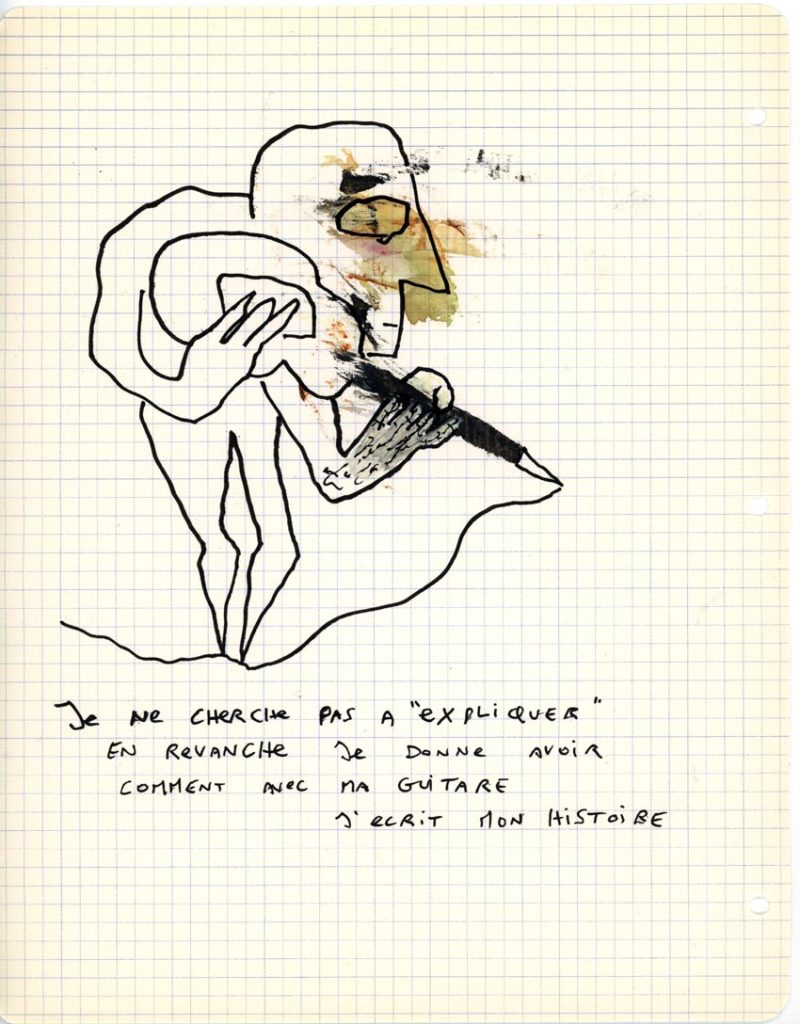 Je NE CHERCHE PAS A "EXPLIQUER"
EN REVANCHE Je DONNE AVOIR
COMMENT AVEC MA GUITARE
J'ECRIT MON HISTOIRE